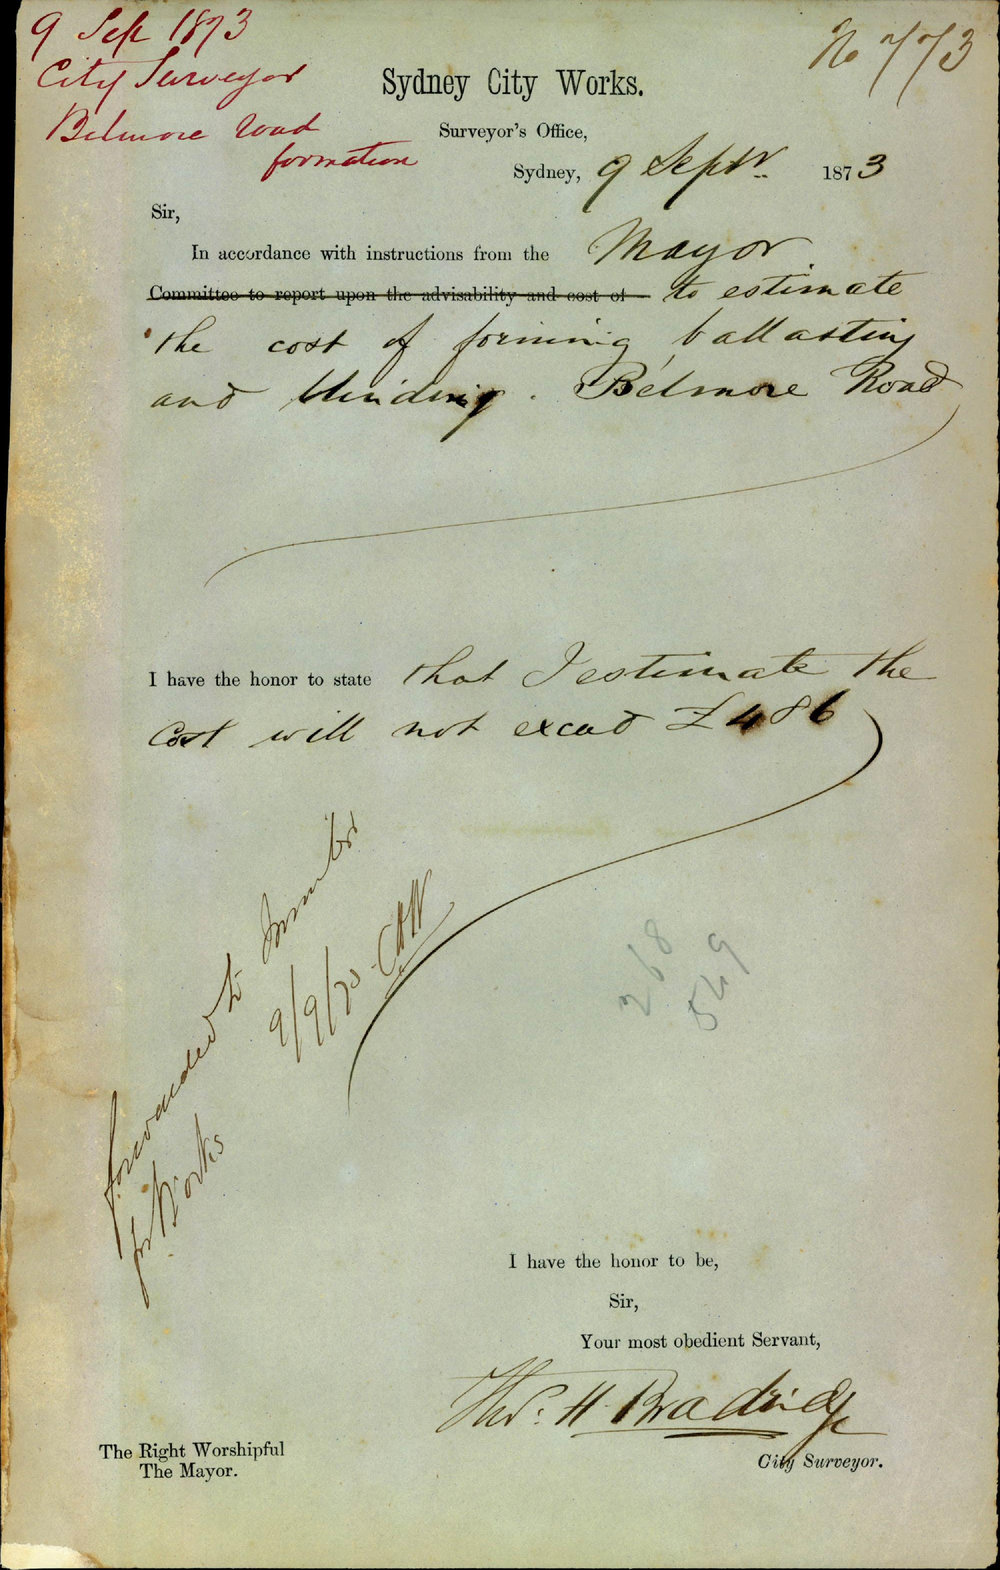 9 Sep 1873
City Surveyor
Belmore Road
formation
No 773
Sydney City Works.
Surveyor's Office,
Sydney, 9 Septr. 1873
Sir,
In accordance with instructions from the Mayor
Committee to report upon the advisability and cost of to estimate
the cost of forming, ballasting
and blinding. Belmore Road
I have the honor to state that I estimate the
Cost will not excead £486
forwarded to
for Works
9/9/73
268
549
I have the honor to be,
Sir,
Your most obedient Servant,
Thos. H. Bradridge
City Surveyor.
The Right Worshipful
The Mayor.